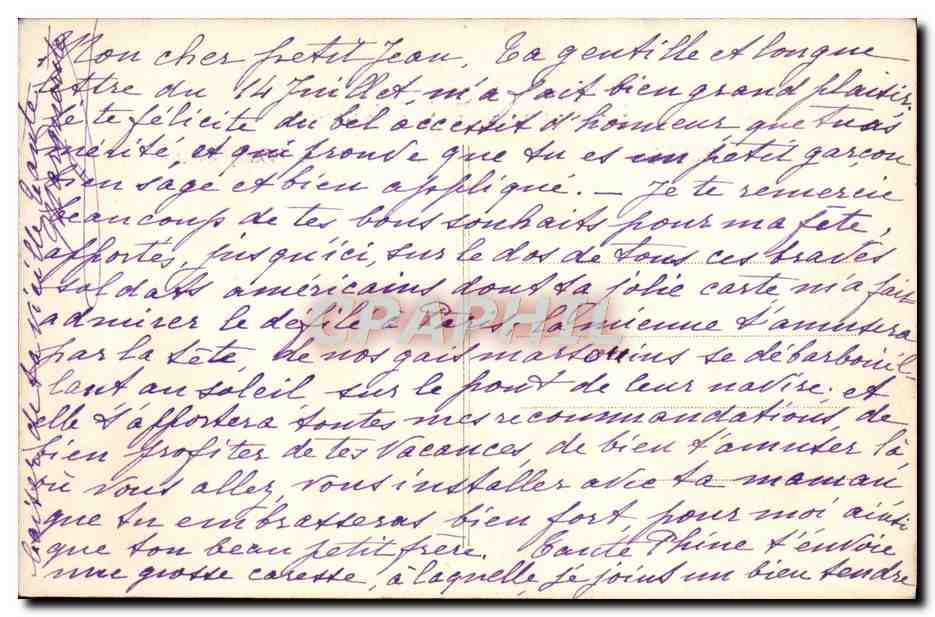 Mon cher petit Jean, Ta gentille et longue
lettre du 14 Juillet, m'a fait bien grand plaisir.
Je te félicite du bel accessit d'honneur que tu as
mérité, et qui prouve que tu es un petit garçon
bien sage et bien appliqué. — Je te remercie
beaucoup de tes bons souhaits pour ma fête,
apportés, jusqu'ici, sur le dos de tous ces braves
soldats américains dont ta jolie carte m'a fait
admirer le défilé à Paris, la mienne t'amusera
par la tête de nos gais marsouins se débarbouil-
lant au soleil sur le pont de leur navire, et
elle t'apportera toutes mes recommandations, de
bien profiter de tes vacances, de bien t'amuser là,
où vous allez, vous installer avec ta maman
que tu embrasseras bien fort, pour moi ainsi
que ton beau petit frère. Tante Phine t'envoie
une grosse caresse, à laquelle, je joins un bien tendre
baiser de ta vieille tante
CPAPHIL